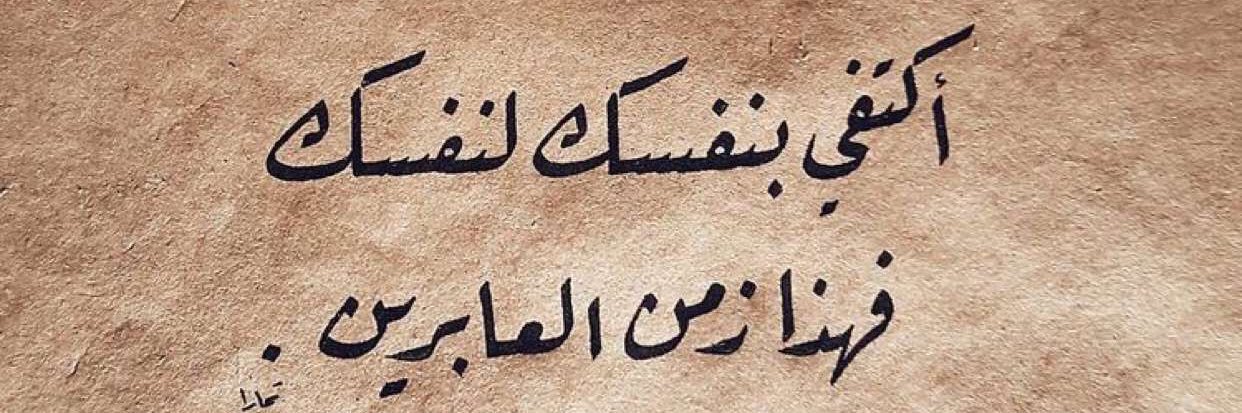 أكتفي بنفسك لنفسك
فهذا زمن العابرين .